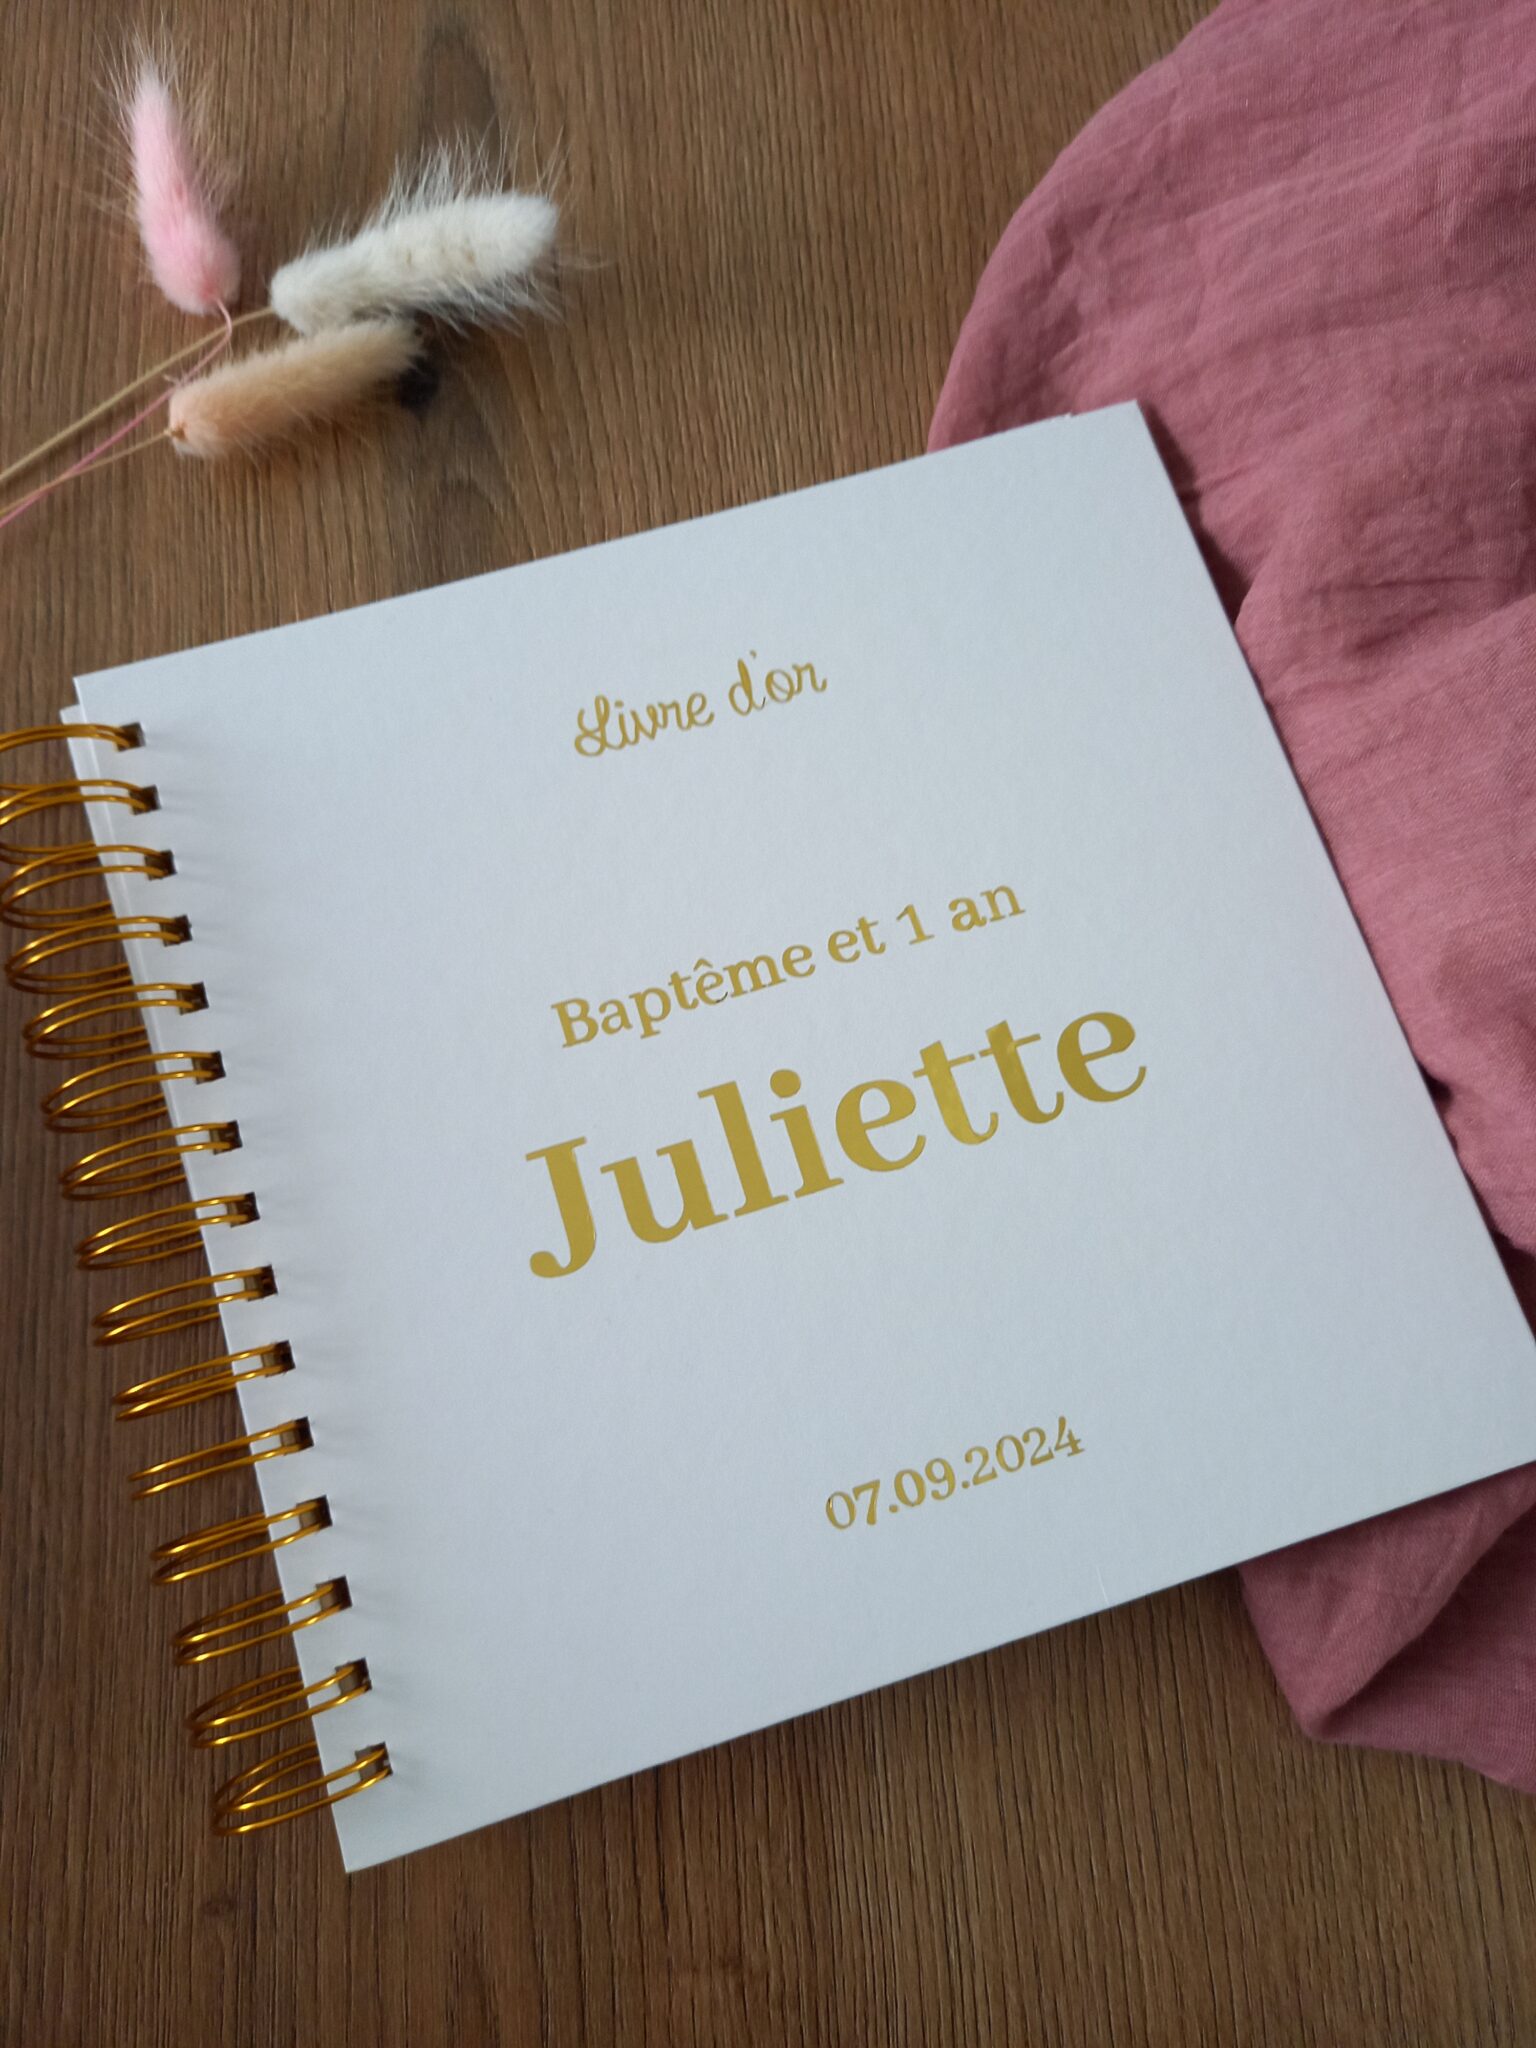 Livre d'or
Baptême et 1 an
Juliette
07.09.2024